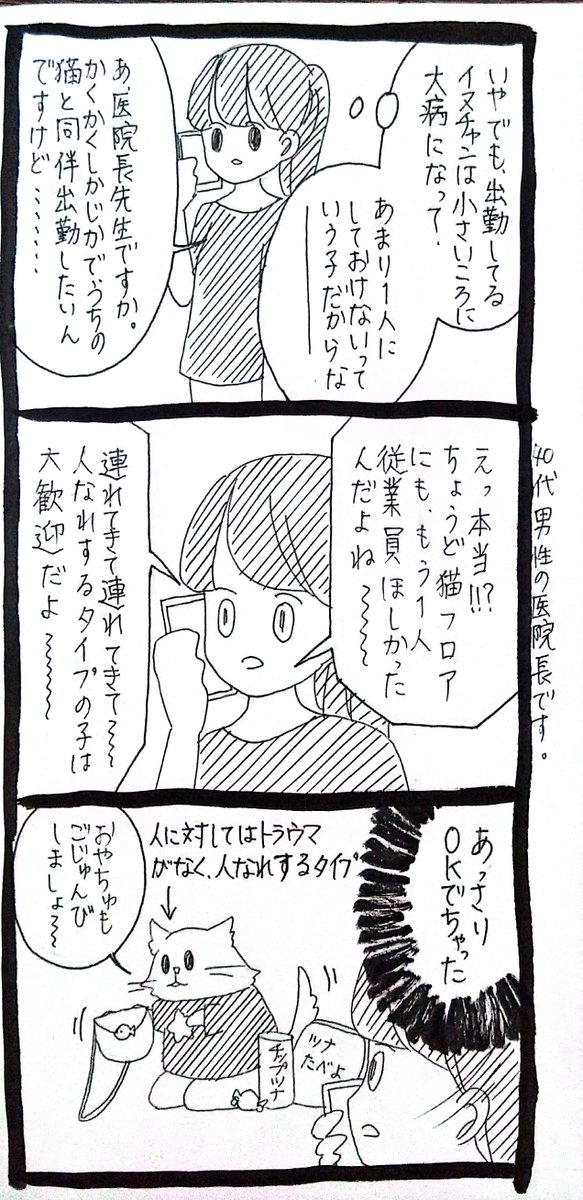 いやでも、出勤してる
イヌチャンは小さいころに
大病になって、
あまり1人に
しておけないって
いう子だからな
あ、医院長先生ですか。
かくかくしかじかでぅうちの
猫と同伴出勤したいん
ですけど…………
40代男性の医院長です。
えっ本当!!?
ちょうど猫フロア
にも、もう1人
従業員ほしかった
んだよね〜〜〜
連れてきて連れてきて〜〜
人なれするタイプの子は
大歓迎だよ〜〜〜〜
あっさり
OKでちゃった
人に対してはトラウマ
がなく、人なれするタイプ
おやちゅも
ごじゅんび
しましょ〜〜
チップツナ
ツナ
たべよ